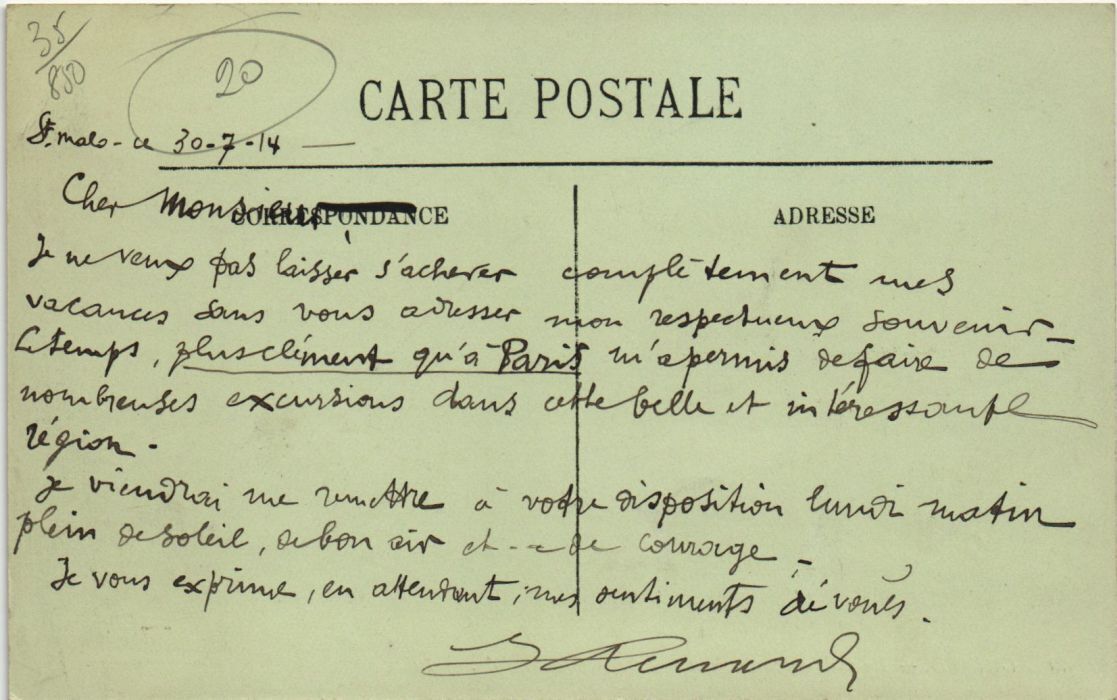 35/850
20
CARTE POSTALE
St. malo - ce 30-7-14 —
Cher Monsieur,
CORRESPONDANCE
ADRESSE
Je ne veux pas laisser s'achever complètement mes
vacances sans vous adresser mon respectueux souvenir -
Le temps, plus clément qu'à Paris m'a permis de faire de
nombreuses excursions dans cette belle et intéressante
région -
Je viendrai me remettre à votre disposition lundi matin
plein de soleil, de bon air et - de courage -
Je vous exprime, en attendant, mes sentiments dévoués.